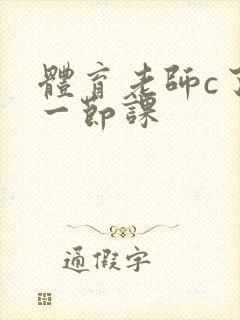 體育老師c了
一節課
通假字